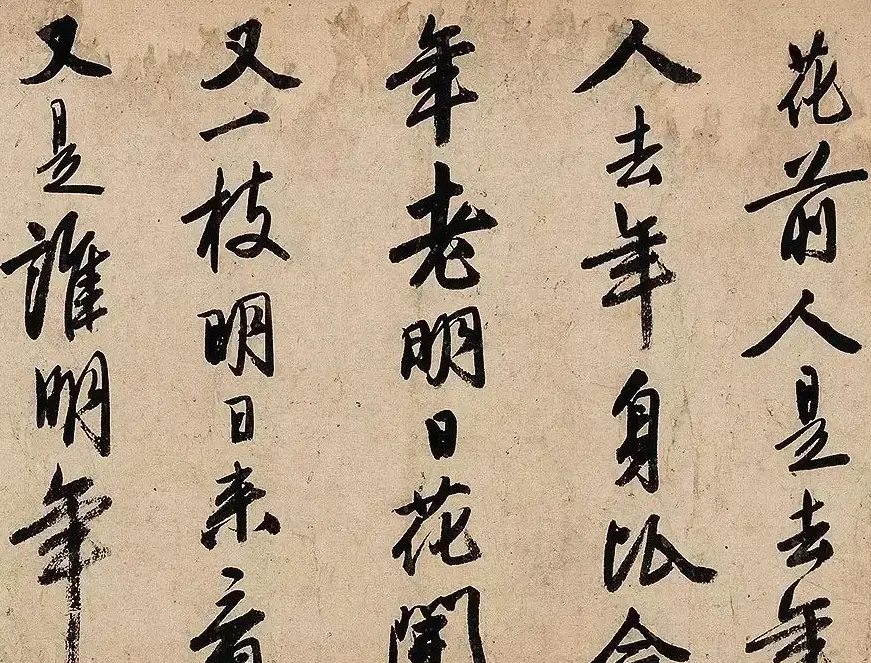 花前人是去年
人去年身比今
年老明日花開
又一枝明日来看
又是誰明年